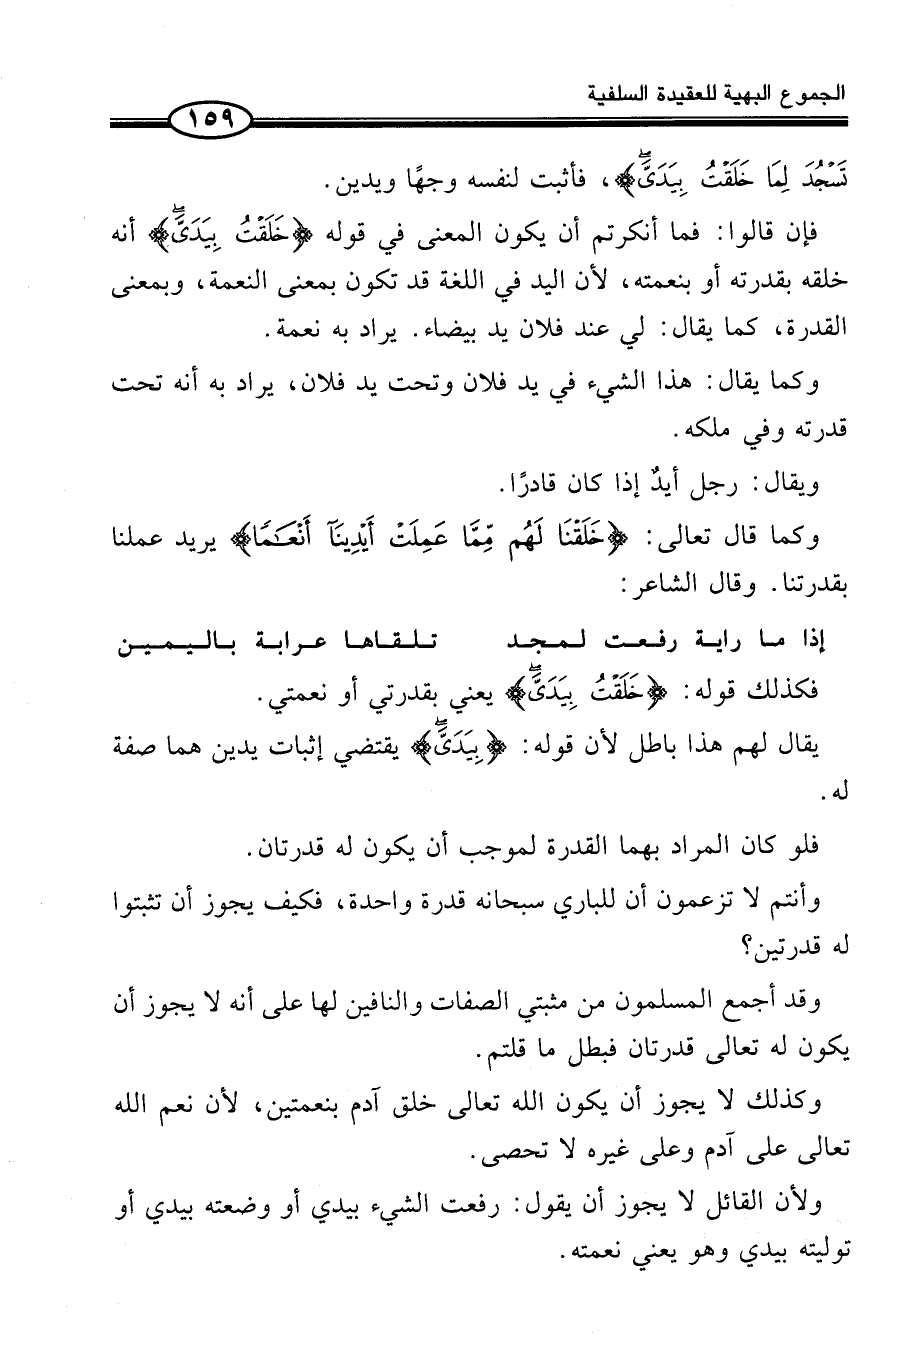 الجموع البهية للعقيدة السلفية
١٥٩
تَسْجُدَ لِمَا خَلَقْتُ بِيَدَىَّۖ﴾، فأثبت لنفسه وجهًا ويدين.
فإن قالوا: فما أنكرتم أن يكون المعنى في قوله ﴿خَلَقْتُ بِيَدَىَّۖ﴾ أنه
خلقه بقدرته أو بنعمته، لأن اليد في اللغة قد تكون بمعنى النعمة، وبمعنى
القدرة، كما يقال: لي عند فلان يد بيضاء. يراد به نعمة.
وكما يقال: هذا الشيء في يد فلان وتحت يد فلان، يراد به أنه تحت
قدرته وفي ملكه.
ويقال: رجل أيدٌ إذا كان قادرًا.
وكما قال تعالى: ﴿خَلَقْنَا لَهُم مِّمَّا عَمِلَتْ أَيْدِينَآ أَنْعَـٰمًا﴾ يريد عملنا
بقدرتنا. وقال الشاعر:
إذا ما راية رفعت لمجد تلقاها عرابة باليمين
فكذلك قوله: ﴿خَلَقْتُ بِيَدَىَّۖ﴾ يعني بقدرتي أو نعمتي.
يقال لهم هذا باطل لأن قوله: ﴿بِيَدَىَّۖ﴾ يقتضي إثبات يدين هما صفة
له.
فلو كان المراد بهما القدرة لموجب أن يكون له قدرتان.
وأنتم لا تزعمون أن للباري سبحانه قدرة واحدة، فكيف يجوز أن تثبتوا
له قدرتين؟
وقد أجمع المسلمون من مثبتي الصفات والنافين لها على أنه لا يجوز أن
يكون له تعالى قدرتان فبطل ما قلتم.
وكذلك لا يجوز أن يكون الله تعالى خلق آدم بنعمتين، لأن نعم الله
تعالى على آدم وعلى غيره لا تحصى.
ولأن القائل لا يجوز أن يقول: رفعت الشيء بيدي أو وضعته بيدي أو
توليته بيدي وهو يعني نعمته.